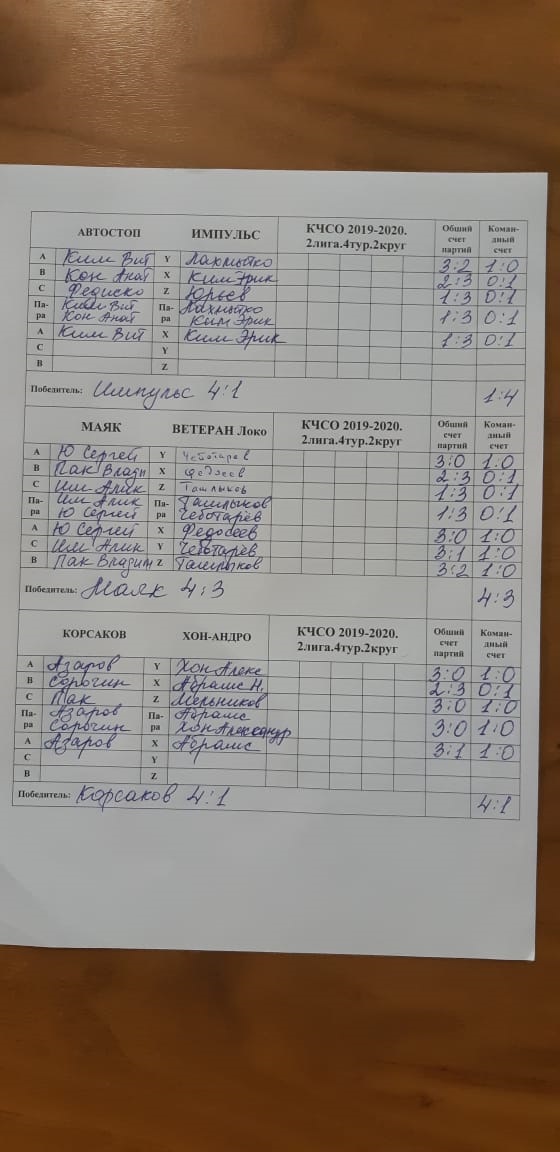 АВТОСТОП ИМПУЛЬС КЧСО 2019-2020. 2лига.4тур.2круг Общий счет партий Коман-дный счет
A Ким Вит Y Лахмытко 3:2 1:0
B Кон Анат X Ким Эрик 2:3 0:1
C Федиско Z Юрьев 1:3 0:1
Па-ра Ким Вит Па-ра Лахмытко 1:3 0:1
Кон Анат Ким Эрик
A Ким Вит X Ким Эрик 1:3 0:1
C Y
B Z
Победитель: Импульс 4:1 1:4
МАЯК ВЕТЕРАН Локо КЧСО 2019-2020. 2лига.4тур.2круг Общий счет партий Коман-дный счет
A Ю Сергей Y Чеботарев 3:0 1:0
B Пак Влади X Федосеев 2:3 0:1
C Им Алик Z Ташлыков 1:3 0:1
Па-ра Им Алик Па-ра Ташлыков 1:3 0:1
Ю Сергей Чеботарёв
A Ю Сергей X Федосеев 3:0 1:0
C Им Алик Y Чеботарёв 3:1 1:0
B Пак Владим Z Ташлыков 3:2 1:0
Победитель: Маяк 4:3 4:3
КОРСАКОВ ХОН-АНДРО КЧСО 2019-2020. 2лига.4тур.2круг Общий счет партий Коман-дный счет
A Азаров Y Хон Алекс 3:0 1:0
B Сорочин X Абрамс Н. 2:3 0:1
C Пак Z Мельников 3:0 1:0
Па-ра Азаров Па-ра Абрамс 3:0 1:0
Сорочин Хон Александр
A Азаров X Абрамс 3:1 1:0
C Y
B Z
Победитель: Корсаков 4:1 4:1